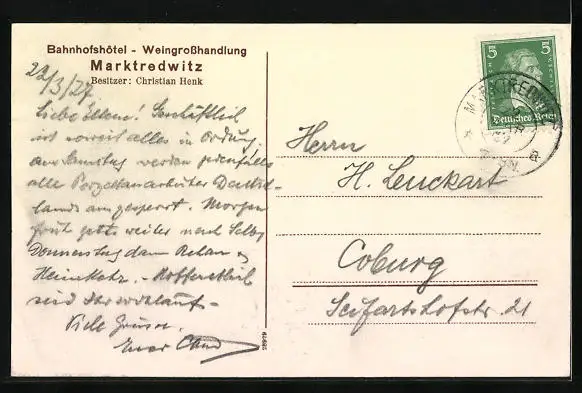 Bahnhofshôtel - Weingroßhandlung
Marktredwitz
Besitzer: Christian Henk
22/3/27
Liebe Eltern! Geschäftlich
ist soweit alles in Ordnung,
am Samstag werden jedenfalls
alle Porzellanarbeiter Deutsch-
lands ausgesperrt. Morgen
früh geht's weiter nach Selb,
Donnerstag dann Rehau &
Heimkehr. - Hoffentlich
seid Ihr wohlauf -
Viele Grüsse.
Euer
28979
5 5
Deutsches Reich
MARKTREDWITZ
Herrn
H. Leuckart
Coburg
Seifartshofstr. 21